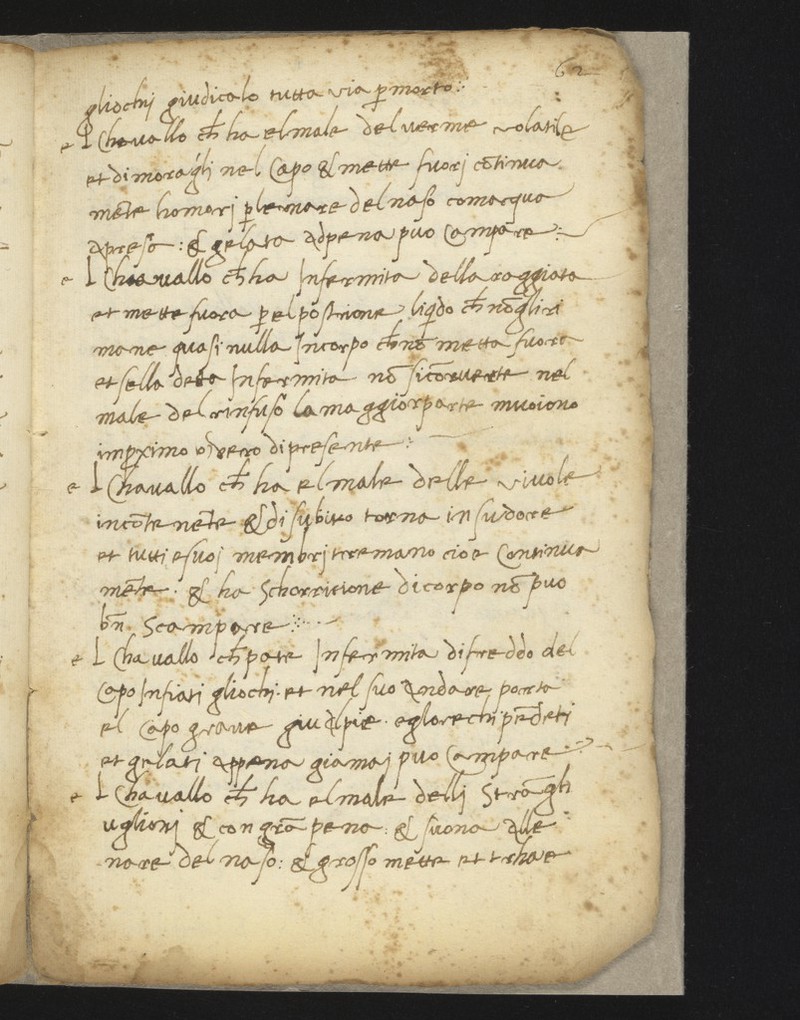 62
gliochij giudicalo tutta via p̱ morto:
e L Chavallo ch̄ ha el male del verme volatile
et dimoragħi nel Capo & mette fuorj cōtinua
mēte homorj p̱ le nare del naso comacqua
apresa: & gelata adpena puo Campare:
e L Chavallo ch̄ ha Infermita della raggiata
et mette fuora p̱ el postrione liqido ch̄ nōgliri
mane quasi nulla Incorpo ch̄ nō metta fuora
et sella deta Infermita nō si cōverte nel
male del rinfuso la maggiorparte muoiono
imp̱ximo overo dipresente:
e L Chavallo ch̄ ha el male delle vivole
incōtenēte & di subito torna in sudore
et tutti esuoj membrj tremano cioe Continua
mēte. & ha Schorritione dicorpo nō puo
bn̄ Scampare:
e L Chavallo ch̄ pate Infermita difreddo del
Capo Infiati gliochi. et nel suo andare porta
el capo grave giu alpie. eglorechi pēdēti
et gelati appena giamaj puo Campare
e L Chavallo ch̄ ha el male dellj Strāgħi
uglionj & con grā pena: & suona alle
nare del naso: & grosso mette et trhae